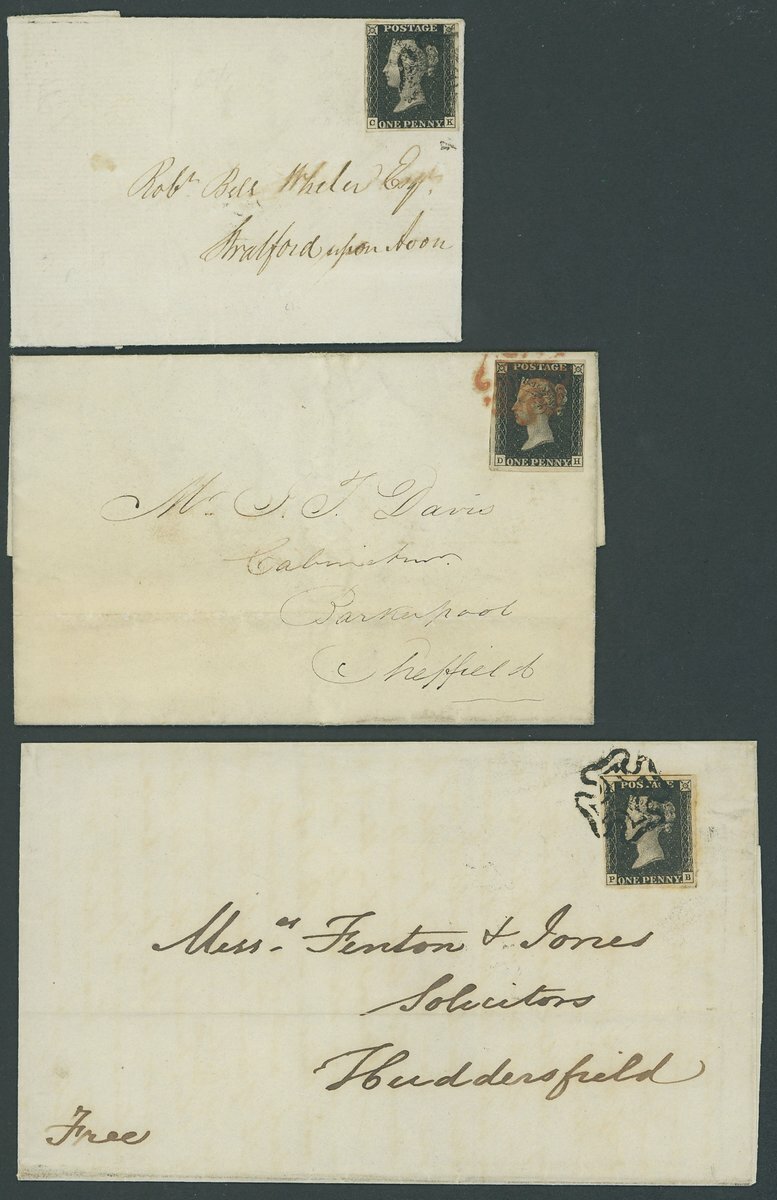 POSTAGE
ONE PENNY
C K
Robt. Bell Wheler Esqr.
Stratford upon Avon
POSTAGE
ONE PENNY
D H
Mr. J. T. Davis
Barkerpool
Sheffield
POSTAGE
ONE PENNY
P B
Messrs Fenton & Jones
Solicitors
Huddersfield
Free